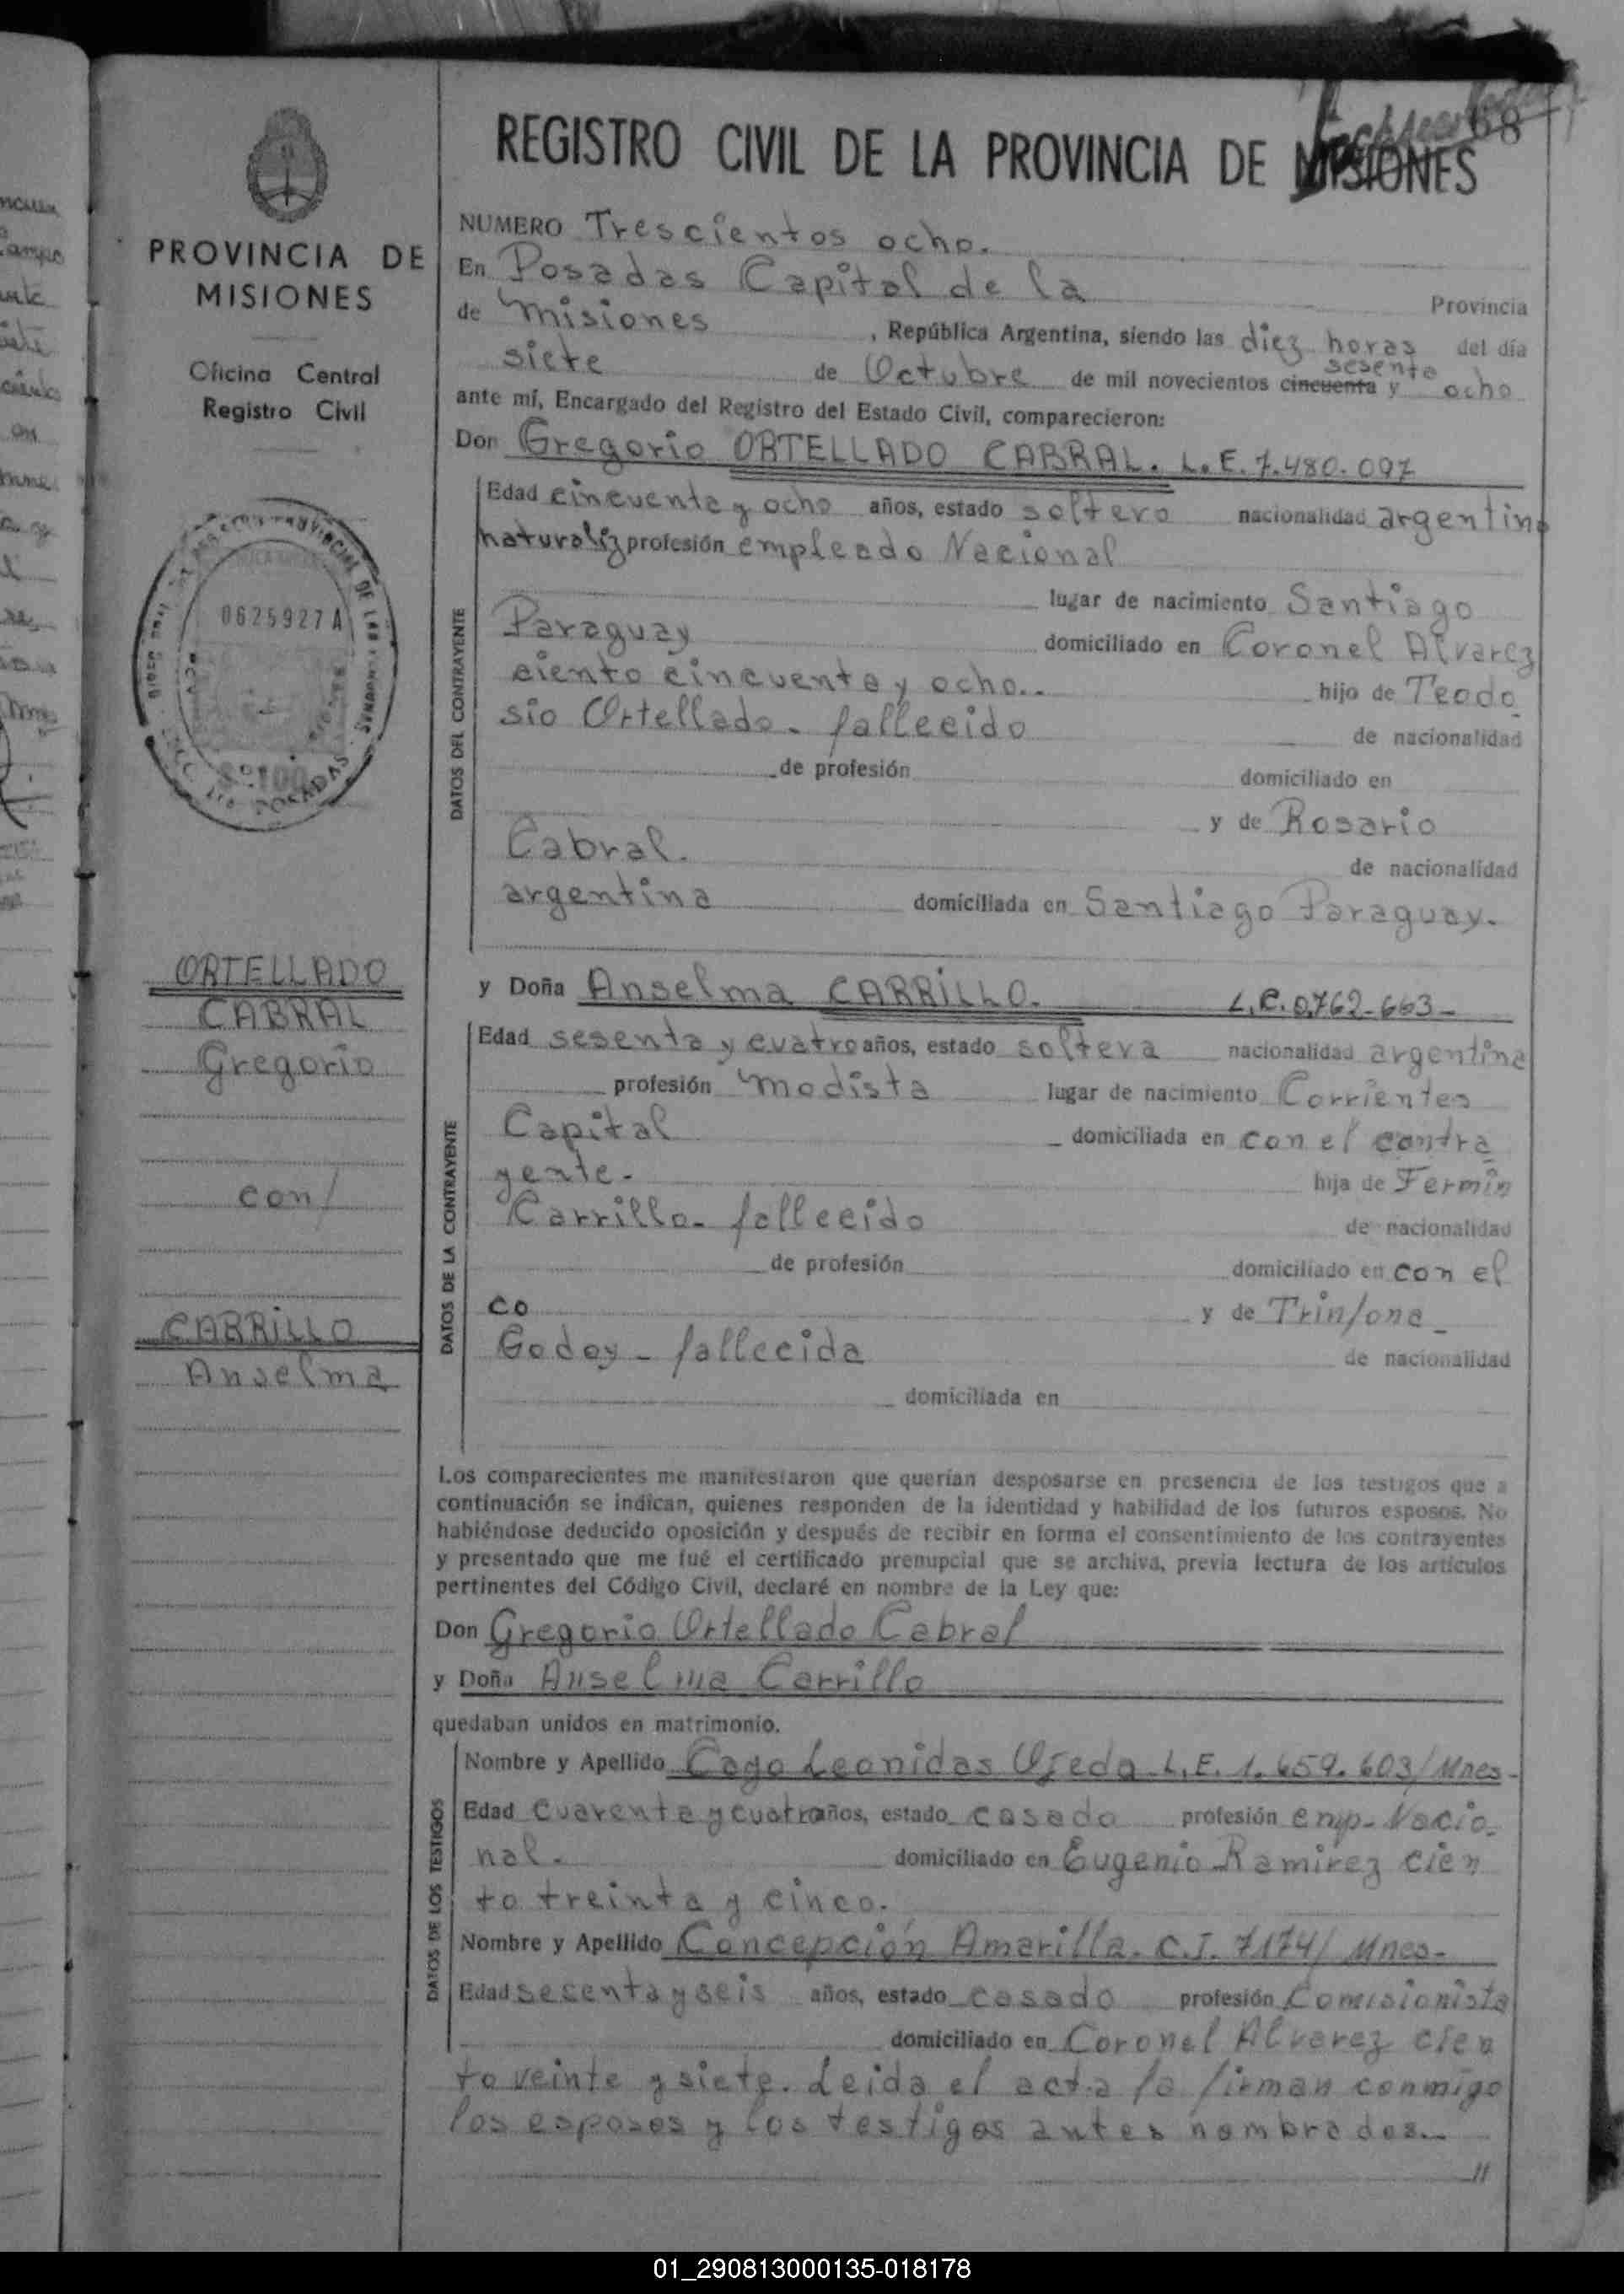 REGISTRO CIVIL DE LA PROVINCIA DE MISIONES
68
PROVINCIA DE
MISIONES
Oficina Central
Registro Civil
0625927 A
POSADAS
ORTELLADO
CABRAL
Gregorio
con/
CARRILLO
Anselma
NUMERO Trescientos ocho.
En Posadas Capital de la Provincia
de Misiones, República Argentina, siendo las diez horas del día
siete de Octubre de mil novecientos cincuenta sesenta y ocho
ante mí, Encargado del Registro del Estado Civil, comparecieron:
Don Gregorio ORTELLADO CABRAL. L.E. 7.480.097
DATOS DEL CONTRAYENTE
Edad cincuenta y ocho años, estado soltero nacionalidad argentino
naturaliz profesión empleado Nacional
lugar de nacimiento Santiago
Paraguay domiciliado en Coronel Alvarez
ciento cincuenta y ocho.. hijo de Teodo
sio Ortellado. fallecido de nacionalidad
de profesión domiciliado en
y de Rosario
Cabral. de nacionalidad
argentina domiciliada en Santiago Paraguay.
y Doña Anselma CARRILLO. L.C. 0.762.663-
DATOS DE LA CONTRAYENTE
Edad sesenta y cuatro años, estado soltera nacionalidad argentina
profesión modista lugar de nacimiento Corrientes
Capital domiciliada en con el contra
yente. hija de Fermín
Carrillo. fallecido de nacionalidad
de profesión domiciliado en con el
co y de Trinfona
Godoy - fallecida de nacionalidad
domiciliada en
Los comparecientes me manifestaron que querían desposarse en presencia de los testigos que a
continuación se indican, quienes responden de la identidad y habilidad de los futuros esposos. No
habiéndose deducido oposición y después de recibir en forma el consentimiento de los contrayentes
y presentado que me fué el certificado prenupcial que se archiva, previa lectura de los artículos
pertinentes del Código Civil, declaré en nombre de la Ley que:
Don Gregorio Ortellado Cabral
y Doña Anselma Carrillo
quedaban unidos en matrimonio.
DATOS DE LOS TESTIGOS
Nombre y Apellido Cago Leonidas Ojeda L.E. 1.659.603/Mnes-
Edad cuarenta y cuatro años, estado casado profesión emp. Nacio.
nal. domiciliado en Eugenio Ramirez cien
to treinta y cinco.
Nombre y Apellido Concepción Amarilla. C.I. 7174/ Mnes-
Edad sesenta y seis años, estado casado profesión Comisionista
domiciliado en Coronel Alvarez cien
to veinte y siete. Leida el acta la firman conmigo
los esposos y los testigos antes nombrados..
//
01_290813000135-018178